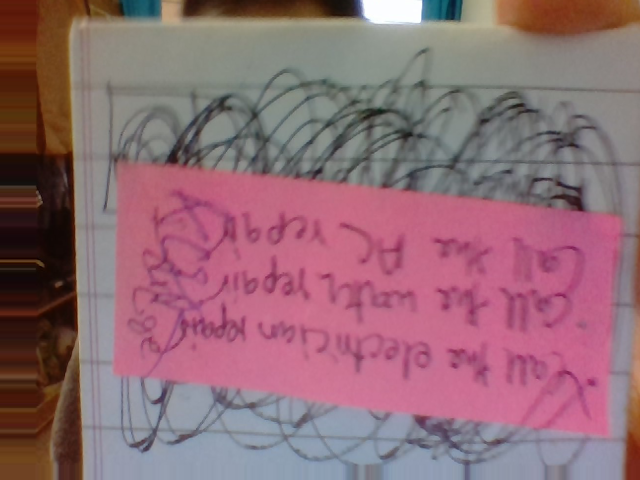 ·Call the electrician repair
·Call the water repair
Call the AC repair